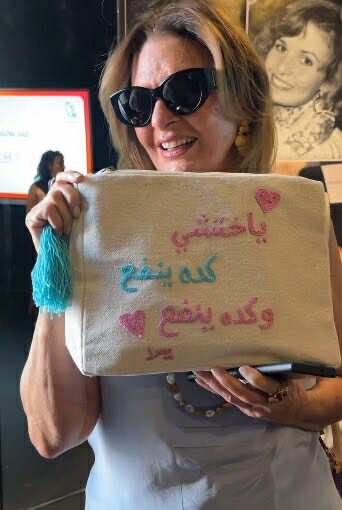 ياختشي
كده ينفع
وكده ينفع
يلا